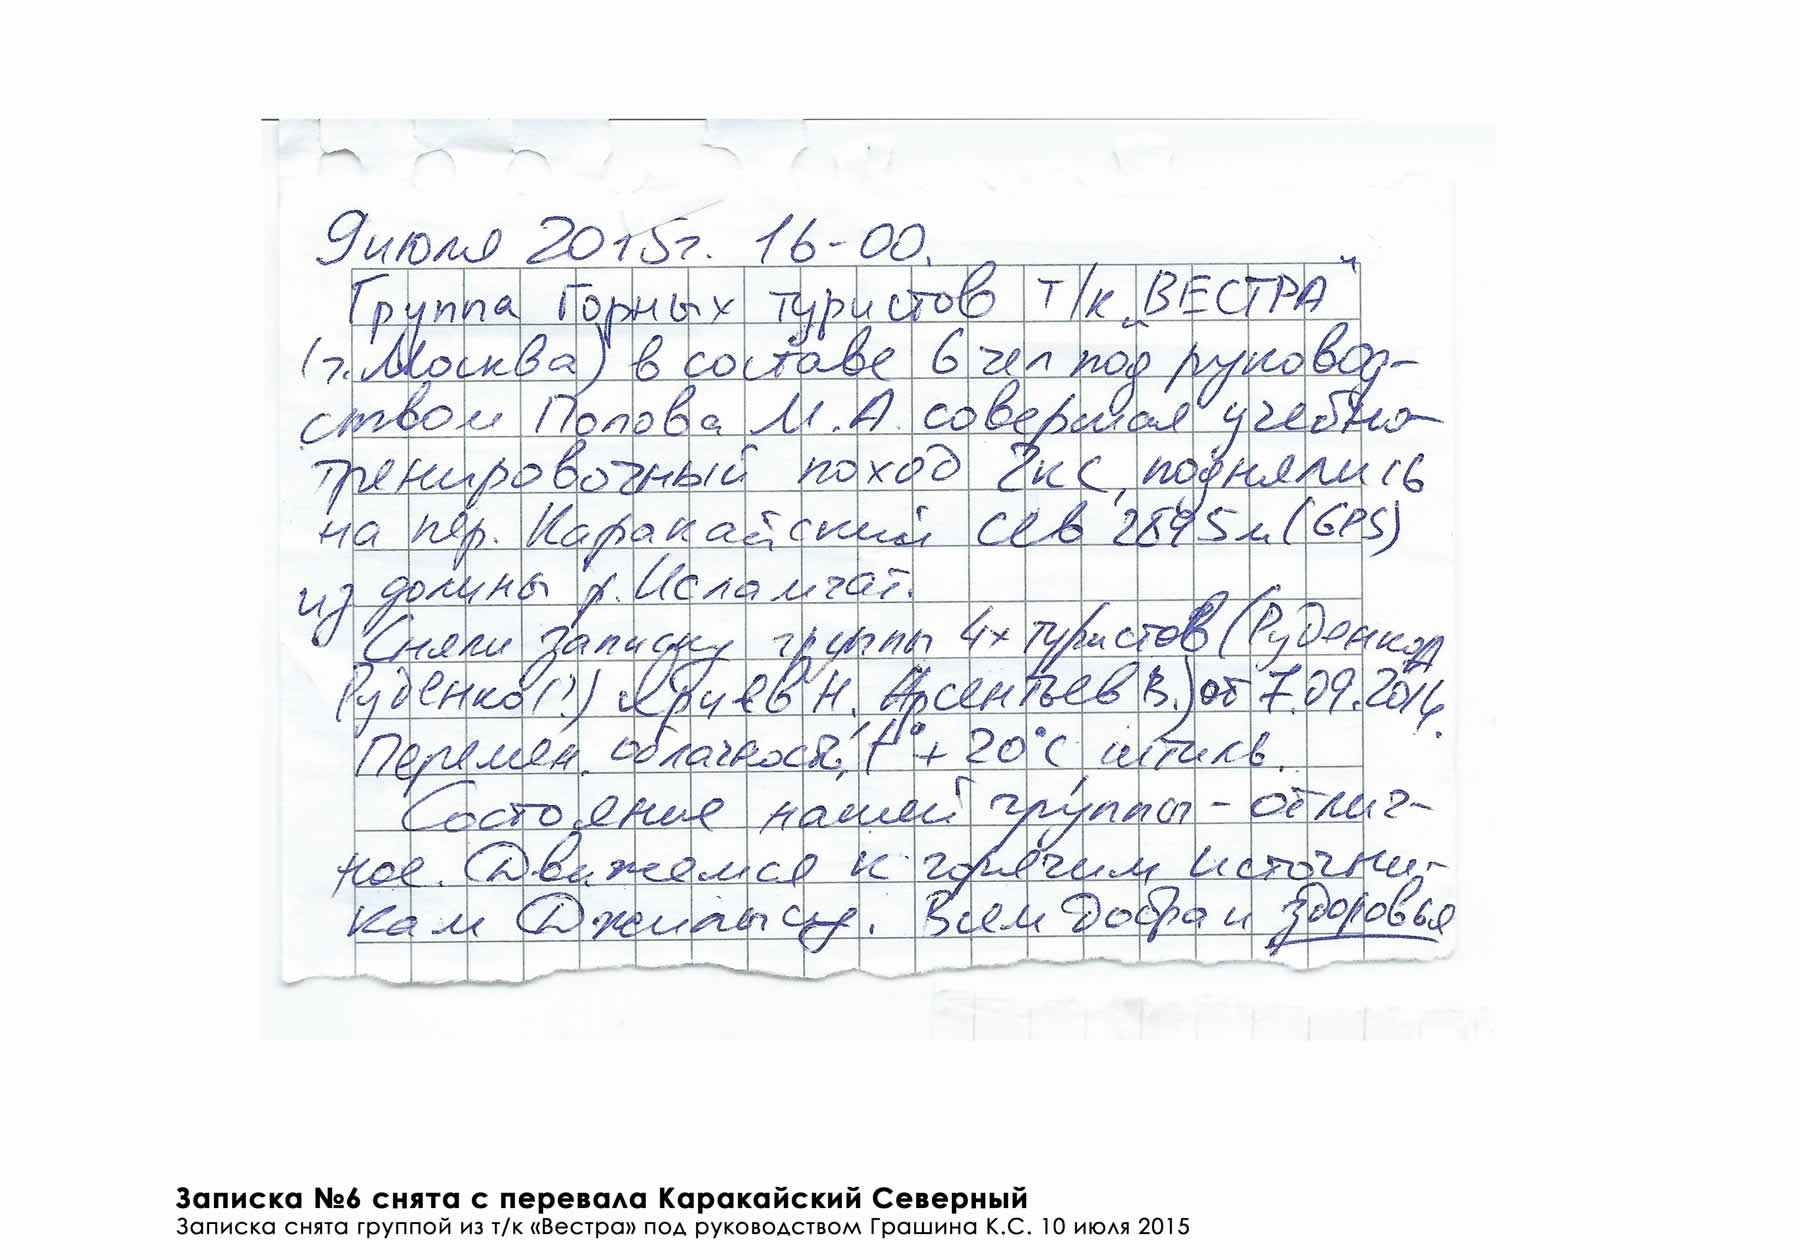 9 июля 2015г. 16-00.
Группа Горных туристов т/к „ВЕСТРА“
(г. Москва) в составе 6 чел под руковод-
ством Попова М.А. совершая учебно-
тренировочный поход 2кс, поднялись
на пер. Каракайский сев 2895м (GPS)
из долины р. Исламчат.
Сняли записку группы 4х туристов (Руденко
Руденко (?) Н. Арсентьев В.) от 7.09.2014.
Перемен. облачность, t° +20°С штиль.
Состояние нашей группы - отлич-
ное. Движемся к горячим источни-
кам Джилысу. Всем Добра и здоровья
Записка №6 снята с перевала Каракайский Северный
Записка снята группой из т/к «Вестра» под руководством Грашина К.С. 10 июля 2015